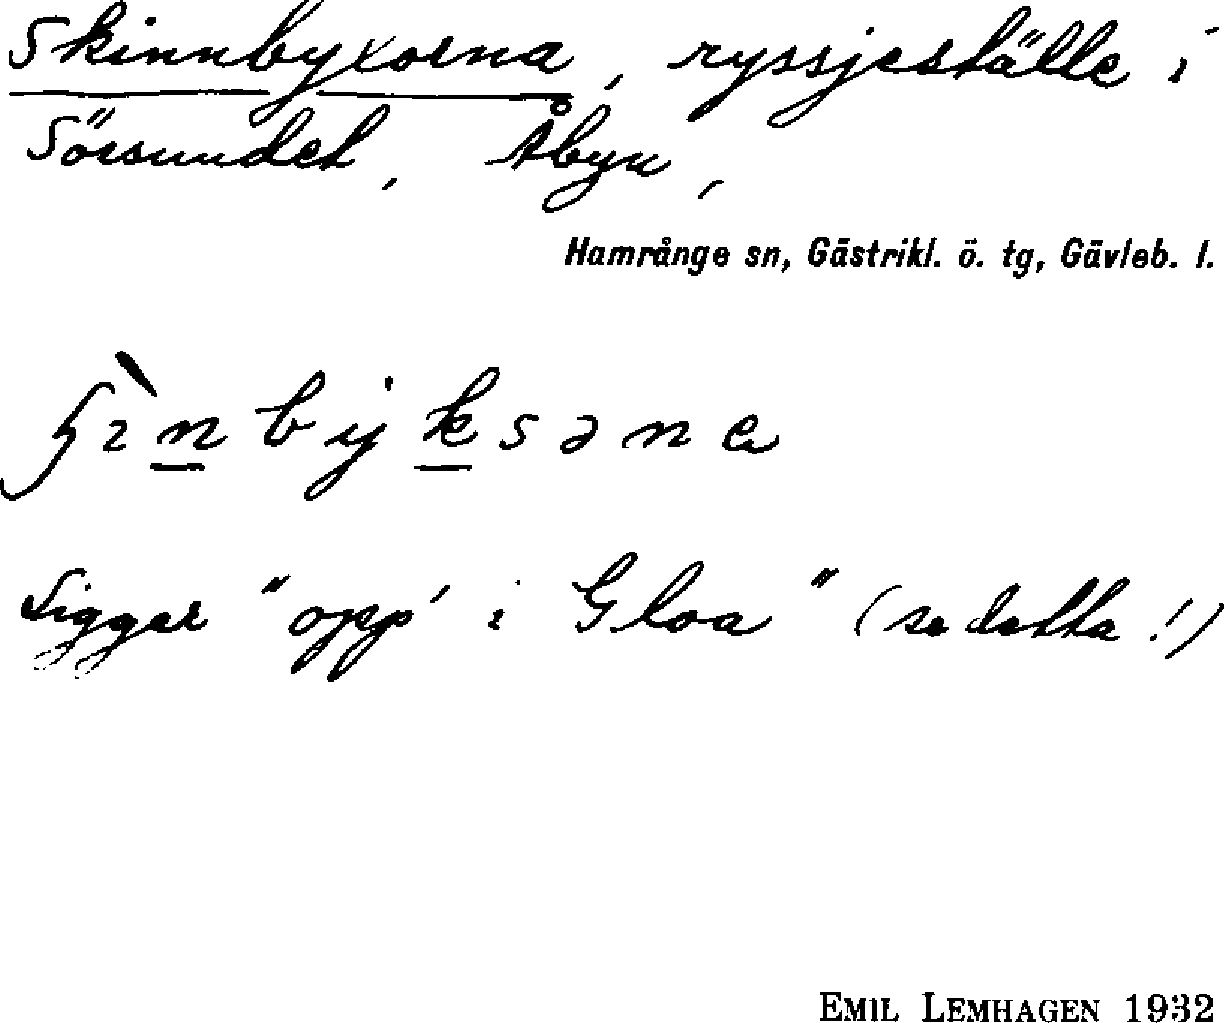 Skinnbyxorna, ryssjeställe i
Sörsundet, Åbyn,
Hamrånge sn, Gästrikl. ö. tg, Gävleb. l.
Ligger "opp' i Gloa" (se detta!)
EMIL LEMHAGEN 1932